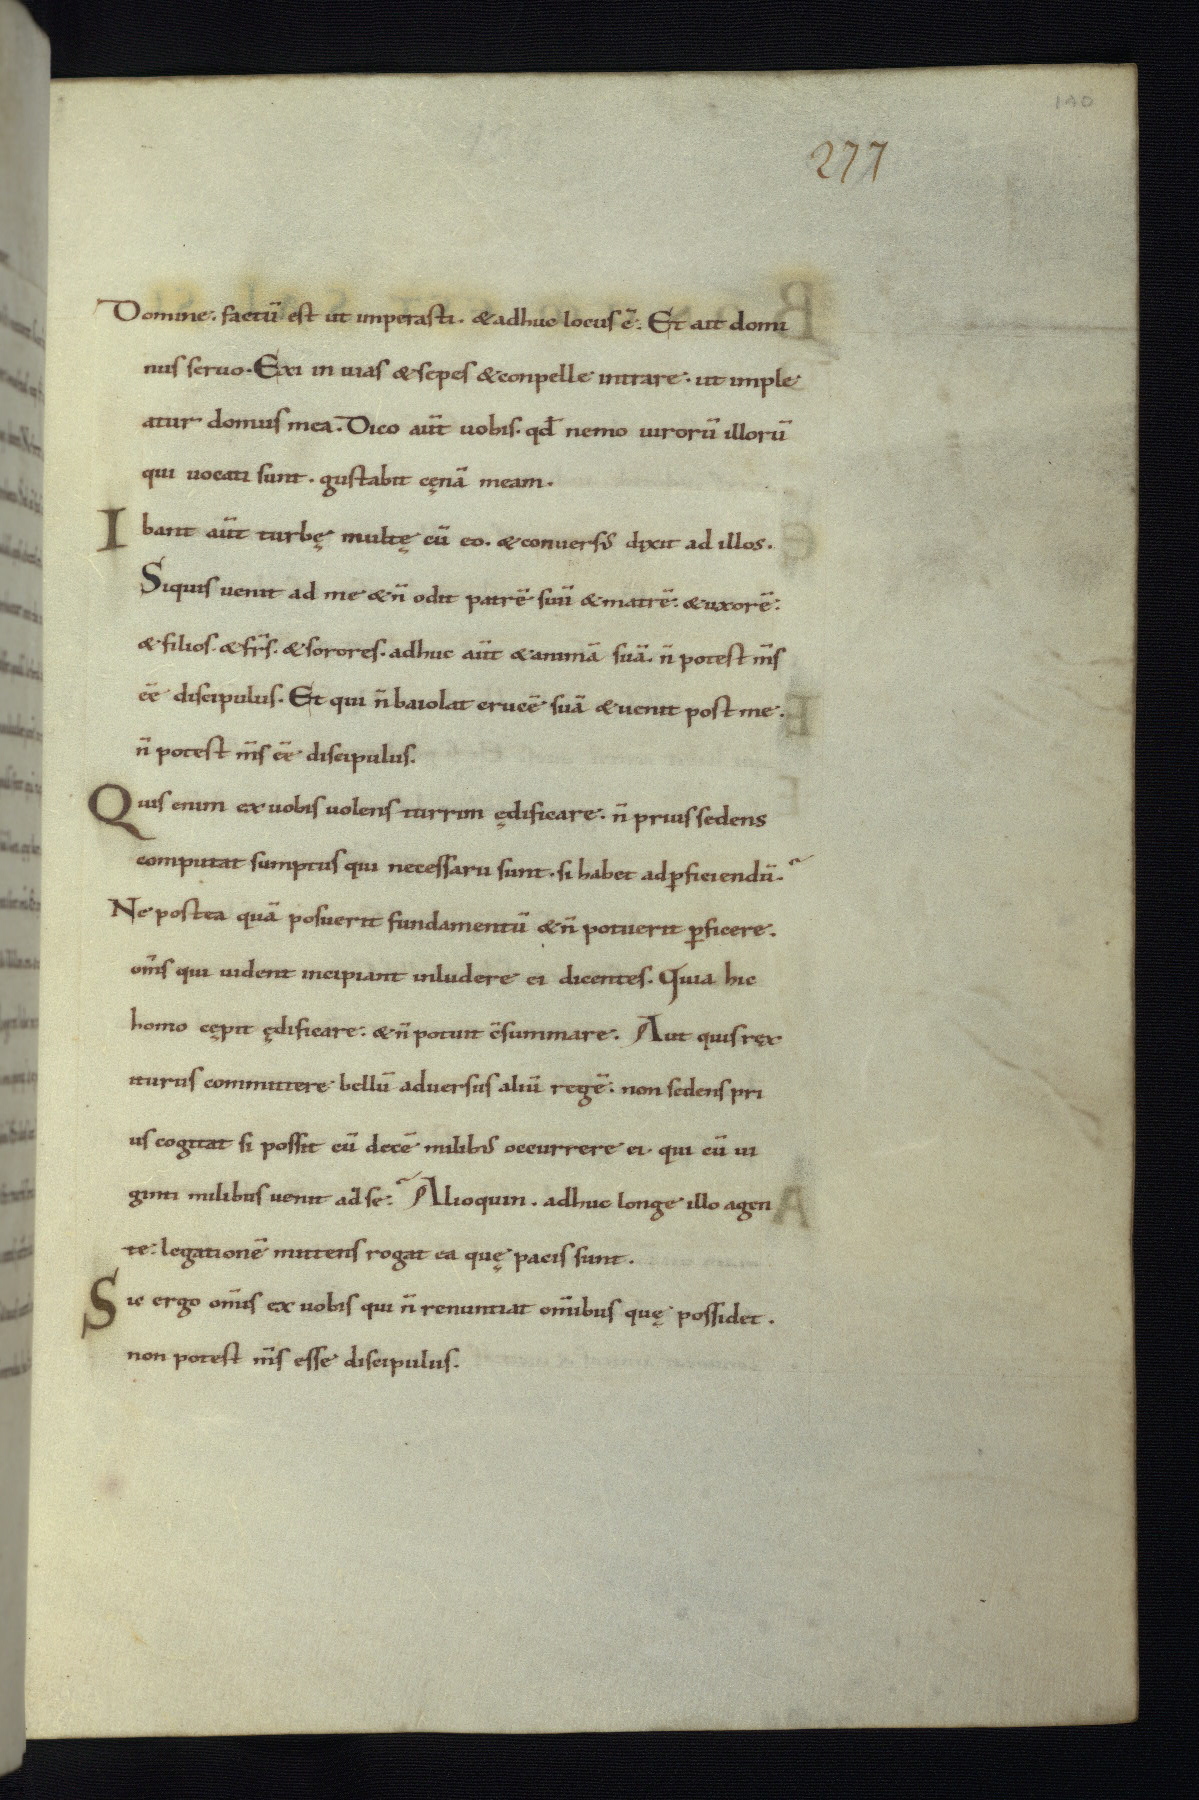 140
277
Domine. factū est ut imperasti. & adhuc locus ē. Et ait domi
nus seruo. Exi in uias & sepes & conpelle intrare. ut imple
atur domus mea. Dico aūt uobis. qđ nemo uirorū illorū
qui uocati sunt. gustabit cęnā meam.
Ibant aūt turbę multę cū eo. & conuersꝰ dixit ad illos.
Siquis uenit ad me & n̄ odit patrē suū & matrē. & uxorē.
& filios. & fr̄s. & sorores. adhuc aūt & animā suā. n̄ potest m̄s
eē discipulus. Et qui n̄ baiolat crucē suā & uenit post me.
n̄ potest m̄s eē discipulus.
Quis enim ex uobis uolens turrim ędificare. n̄ prius sedens
computat sumptus qui necessarii sunt. si habet ad ꝑficiendū.
Ne postea quā posuerit fundamentū & n̄ potuerit ꝑficere.
om̄s qui uident incipiant inludere ei dicentes. Quia hic
homo cępit ędificare. & n̄ potuit c̄summare. Aut quis rex
iturus committere bellū aduersus aliū regē. non sedens pri
us cogitat si possit cū decē milibꝰ occurrere ei. qui cū ui
ginti milibus uenit ad se. Alioquin. adhuc longe illo agen
te. legationē mittens rogat ea quę pacis sunt.
Sic ergo om̄is ex uobis qui n̄ renuntiat om̄ibus quę possidet.
non potest m̄s esse discipulus.